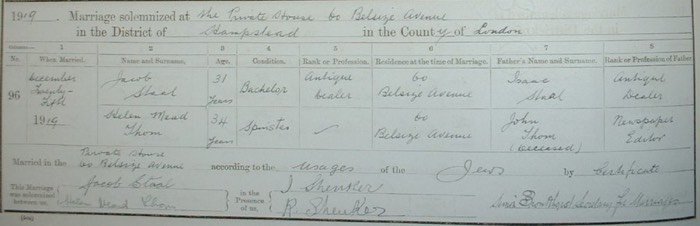 1919. Marriage solemnized at the Private House 60 Belsize Avenue
in the District of Hampstead in the County of London
1 2 3 4 5 6 7 8
No. When Married. Name and Surname. Age. Condition. Rank or Profession. Residence at the time of Marriage. Father's Name and Surname. Rank or Profession of Father
96 December Twenty-Fifth 1919 Jacob Staal 31 Years Bachelor Antique Dealer 60 Belsize Avenue Isaac Staal Antique Dealer
Helen Mead Thom 34 Years Spinster — 60 Belsize Avenue John Thom (deceased) Newspaper Editor
Married in the Private House 60 Belsize Avenue according to the usages of the Jews by Certificate
This Marriage was solemnized between us, Jacob Staal Helen Mead Thom in the Presence of us, I Shenker R Shenker Secretary for Marriages